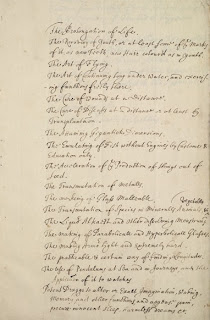 The Prolongation of Life.
The Recovery of Youth, or at least some of the Marks
of it, as new Teeth, new Hair colour'd as in youth.
The Art of Flying.
The Art of Continuing long under Water, and exercising
functions freely there.
The Cure of Wounds at a Distance.
The Cure of Diseases at a distance or at least by
Transplantation.
The Attaining Gigantick Dimensions.
The Emulating of Fish without Engines by Custome &
Education only.
The Acceleration of the Production of things out of
Seed.
The Transmutation of Metalls.
The makeing of Glass Malleable.
The Transmutation of Species in Mineralls, Animals, &
Vegetables
The Liquid Alkaest and Other dissolving Menstruums
The making of Parabolicall and Hyperbolicall Glasses
The making Armor light and extremely hard.
The practicable & certain way of finding Longitudes.
The use of Pendulums at Sea and in Journeys, and the
Application of it to watches
Potent Druggs to alter or Exalt Imagination, Waking,
Memory, and other functions, and appease pain,
procure innocent sleep, harmless dreams, etc.